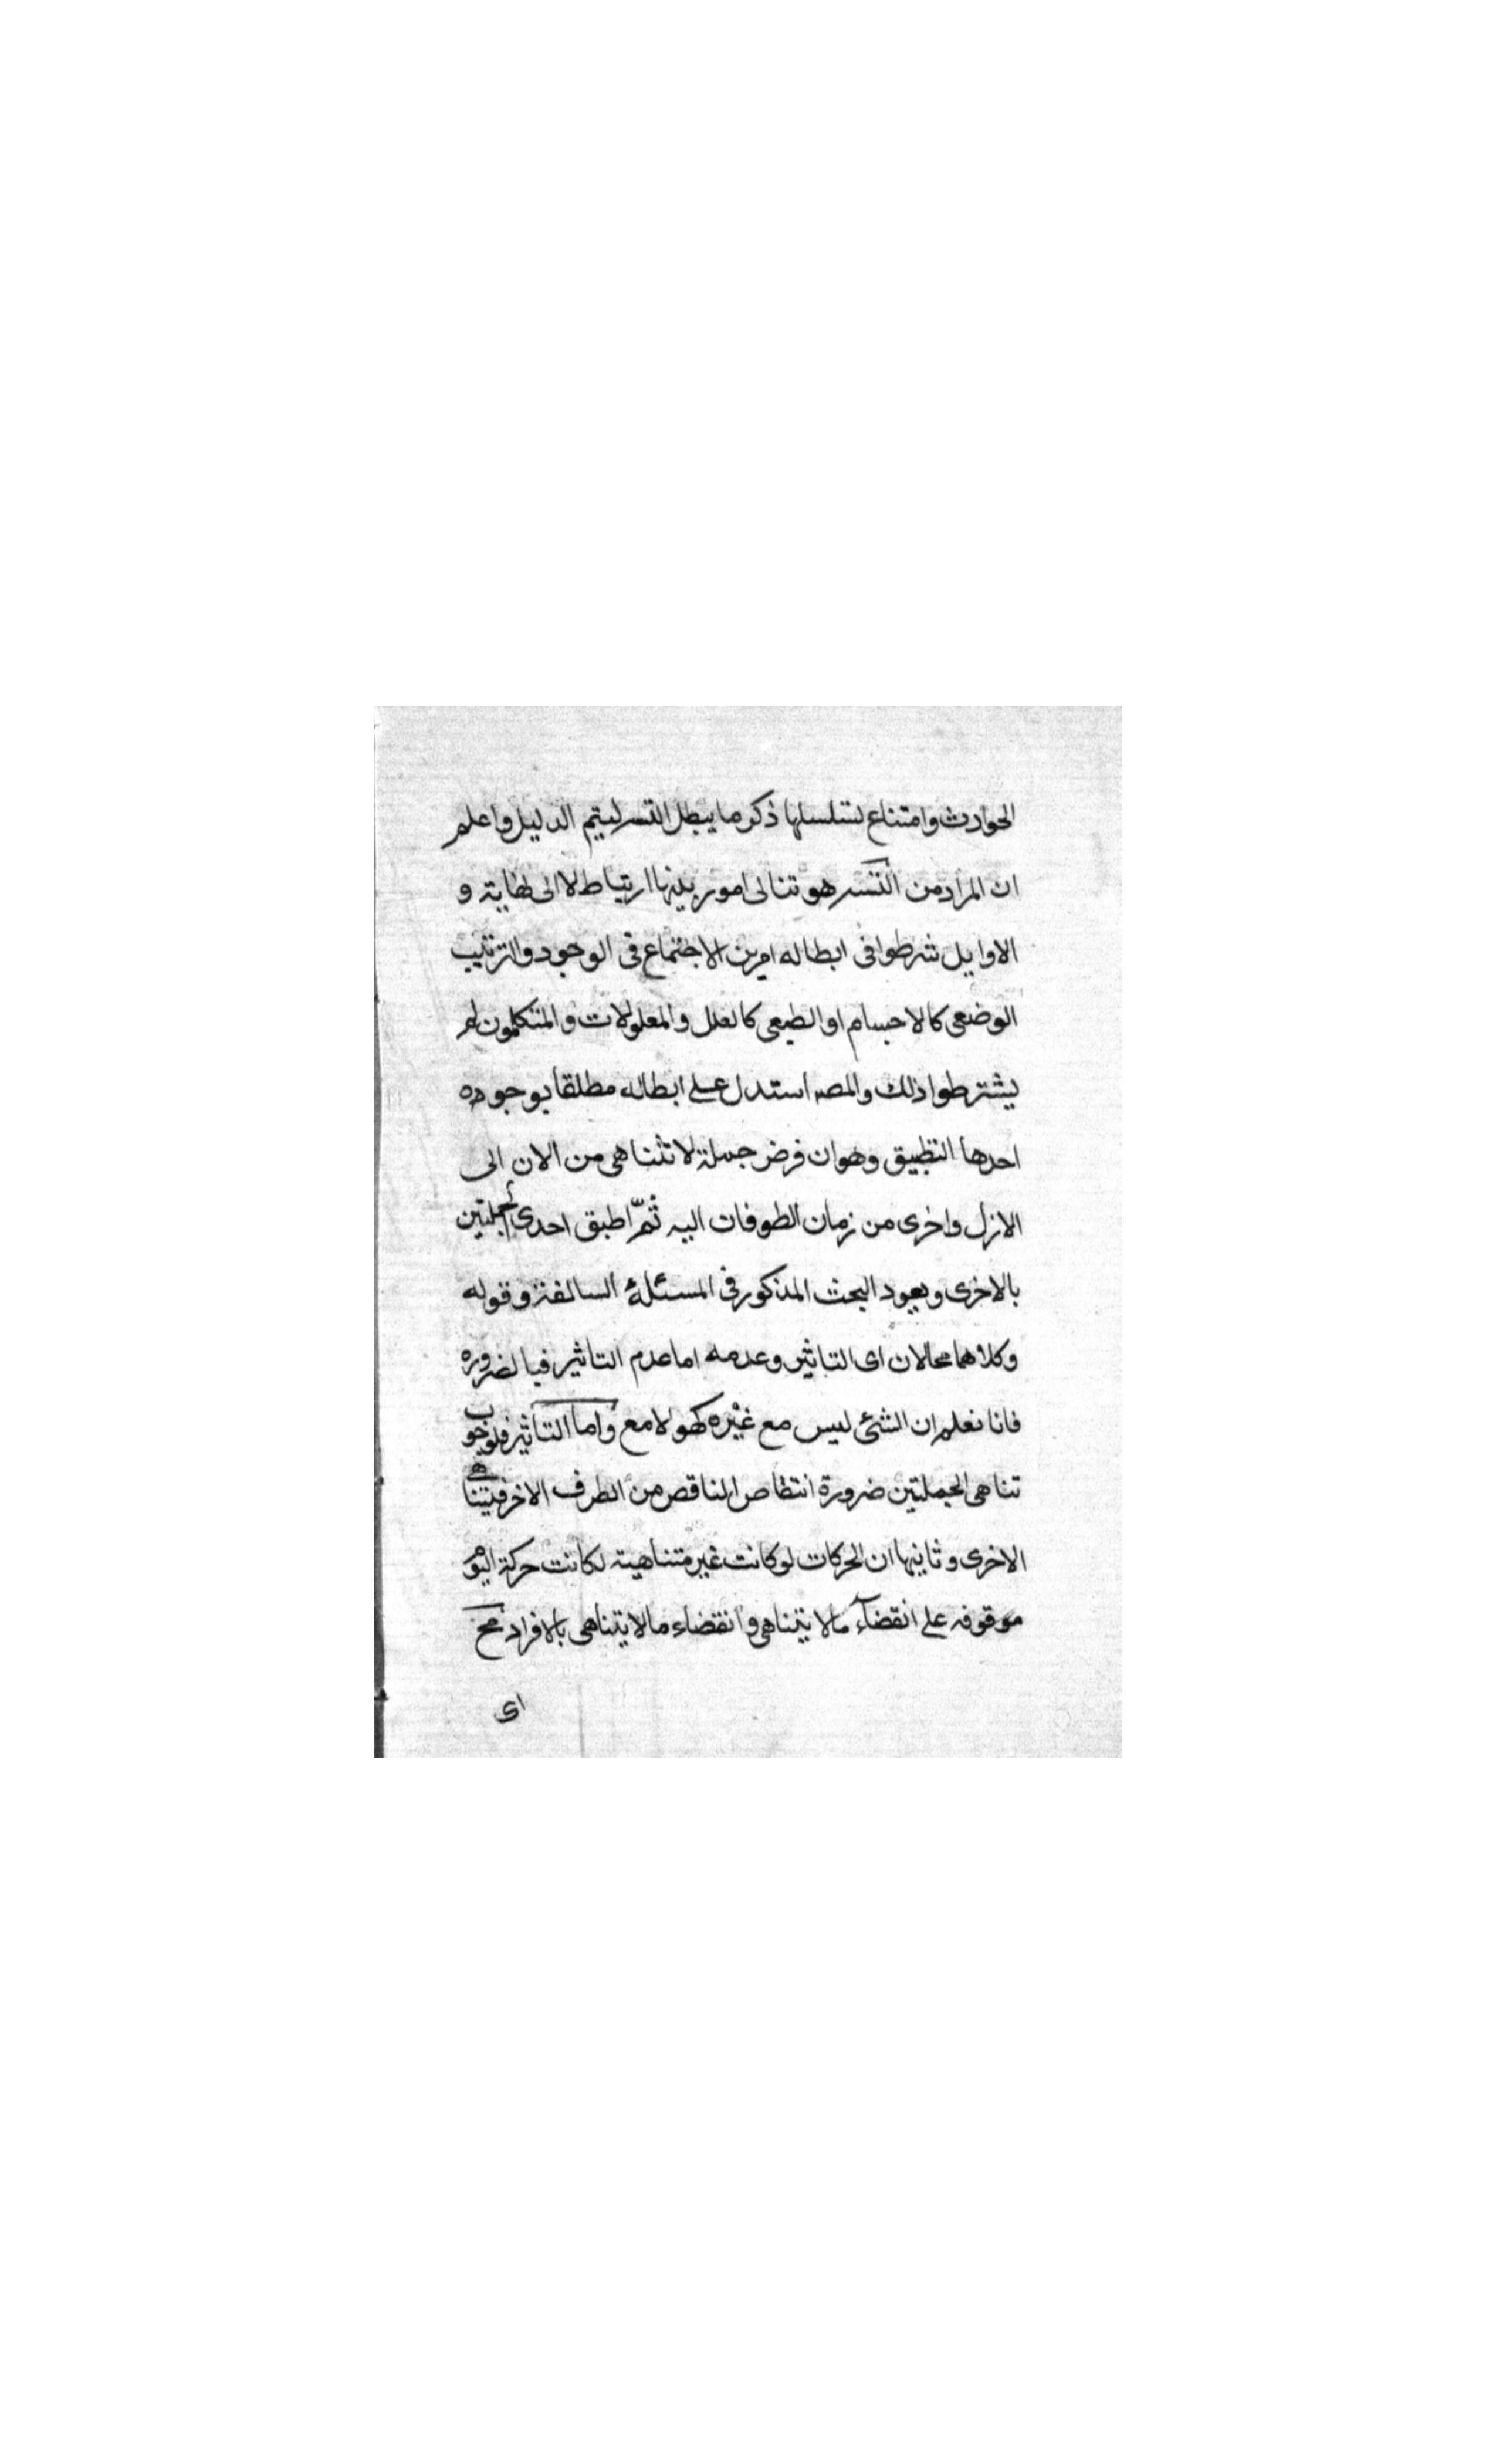 الحوادث وامتناع تسلسلها ذكر ما يبطل التسـ ليتم الدليل واعلم
ان المراد من التسـ هو تتالى امور بينها ارتباط لا الى نهاية و
الاوايل شرطوا فى ابطاله امرين الاجتماع فى الوجود والترتيب
الوضعى كالاجسام او الطبيعى كالعلل والمعلولات والمتكلمون لم
يشترطوا ذلك والمصـ استدل على ابطاله مطلقا بوجوده
احدها التطبيق وهو ان فرض جملة لا تتناهى من الان الى
الازل واخرى من زمان الطوفات اليه ثمّ اطبق احدى الجملتين
بالاخرى ويعود البحث المذكور فى المسئلة السالفة وقوله
وكلاهما محالان اى التاثير وعدمه اما عدم التاثير فبالضروره
فانا نعلم ان الشئ ليس مع غيره كهو لا مع واما التاثير فلوجوب
تناهى الجملتين ضرورة انتقاص الناقص من الطرف الاخر فيتناهى
الاخرى وثانيها ان الحركات لو كانت غير متناهية لكانت حركة اليوم
موقوفه على انقضآء مالا يتناهى وانقضاء مالا يتناهى بالافراد مح
اى